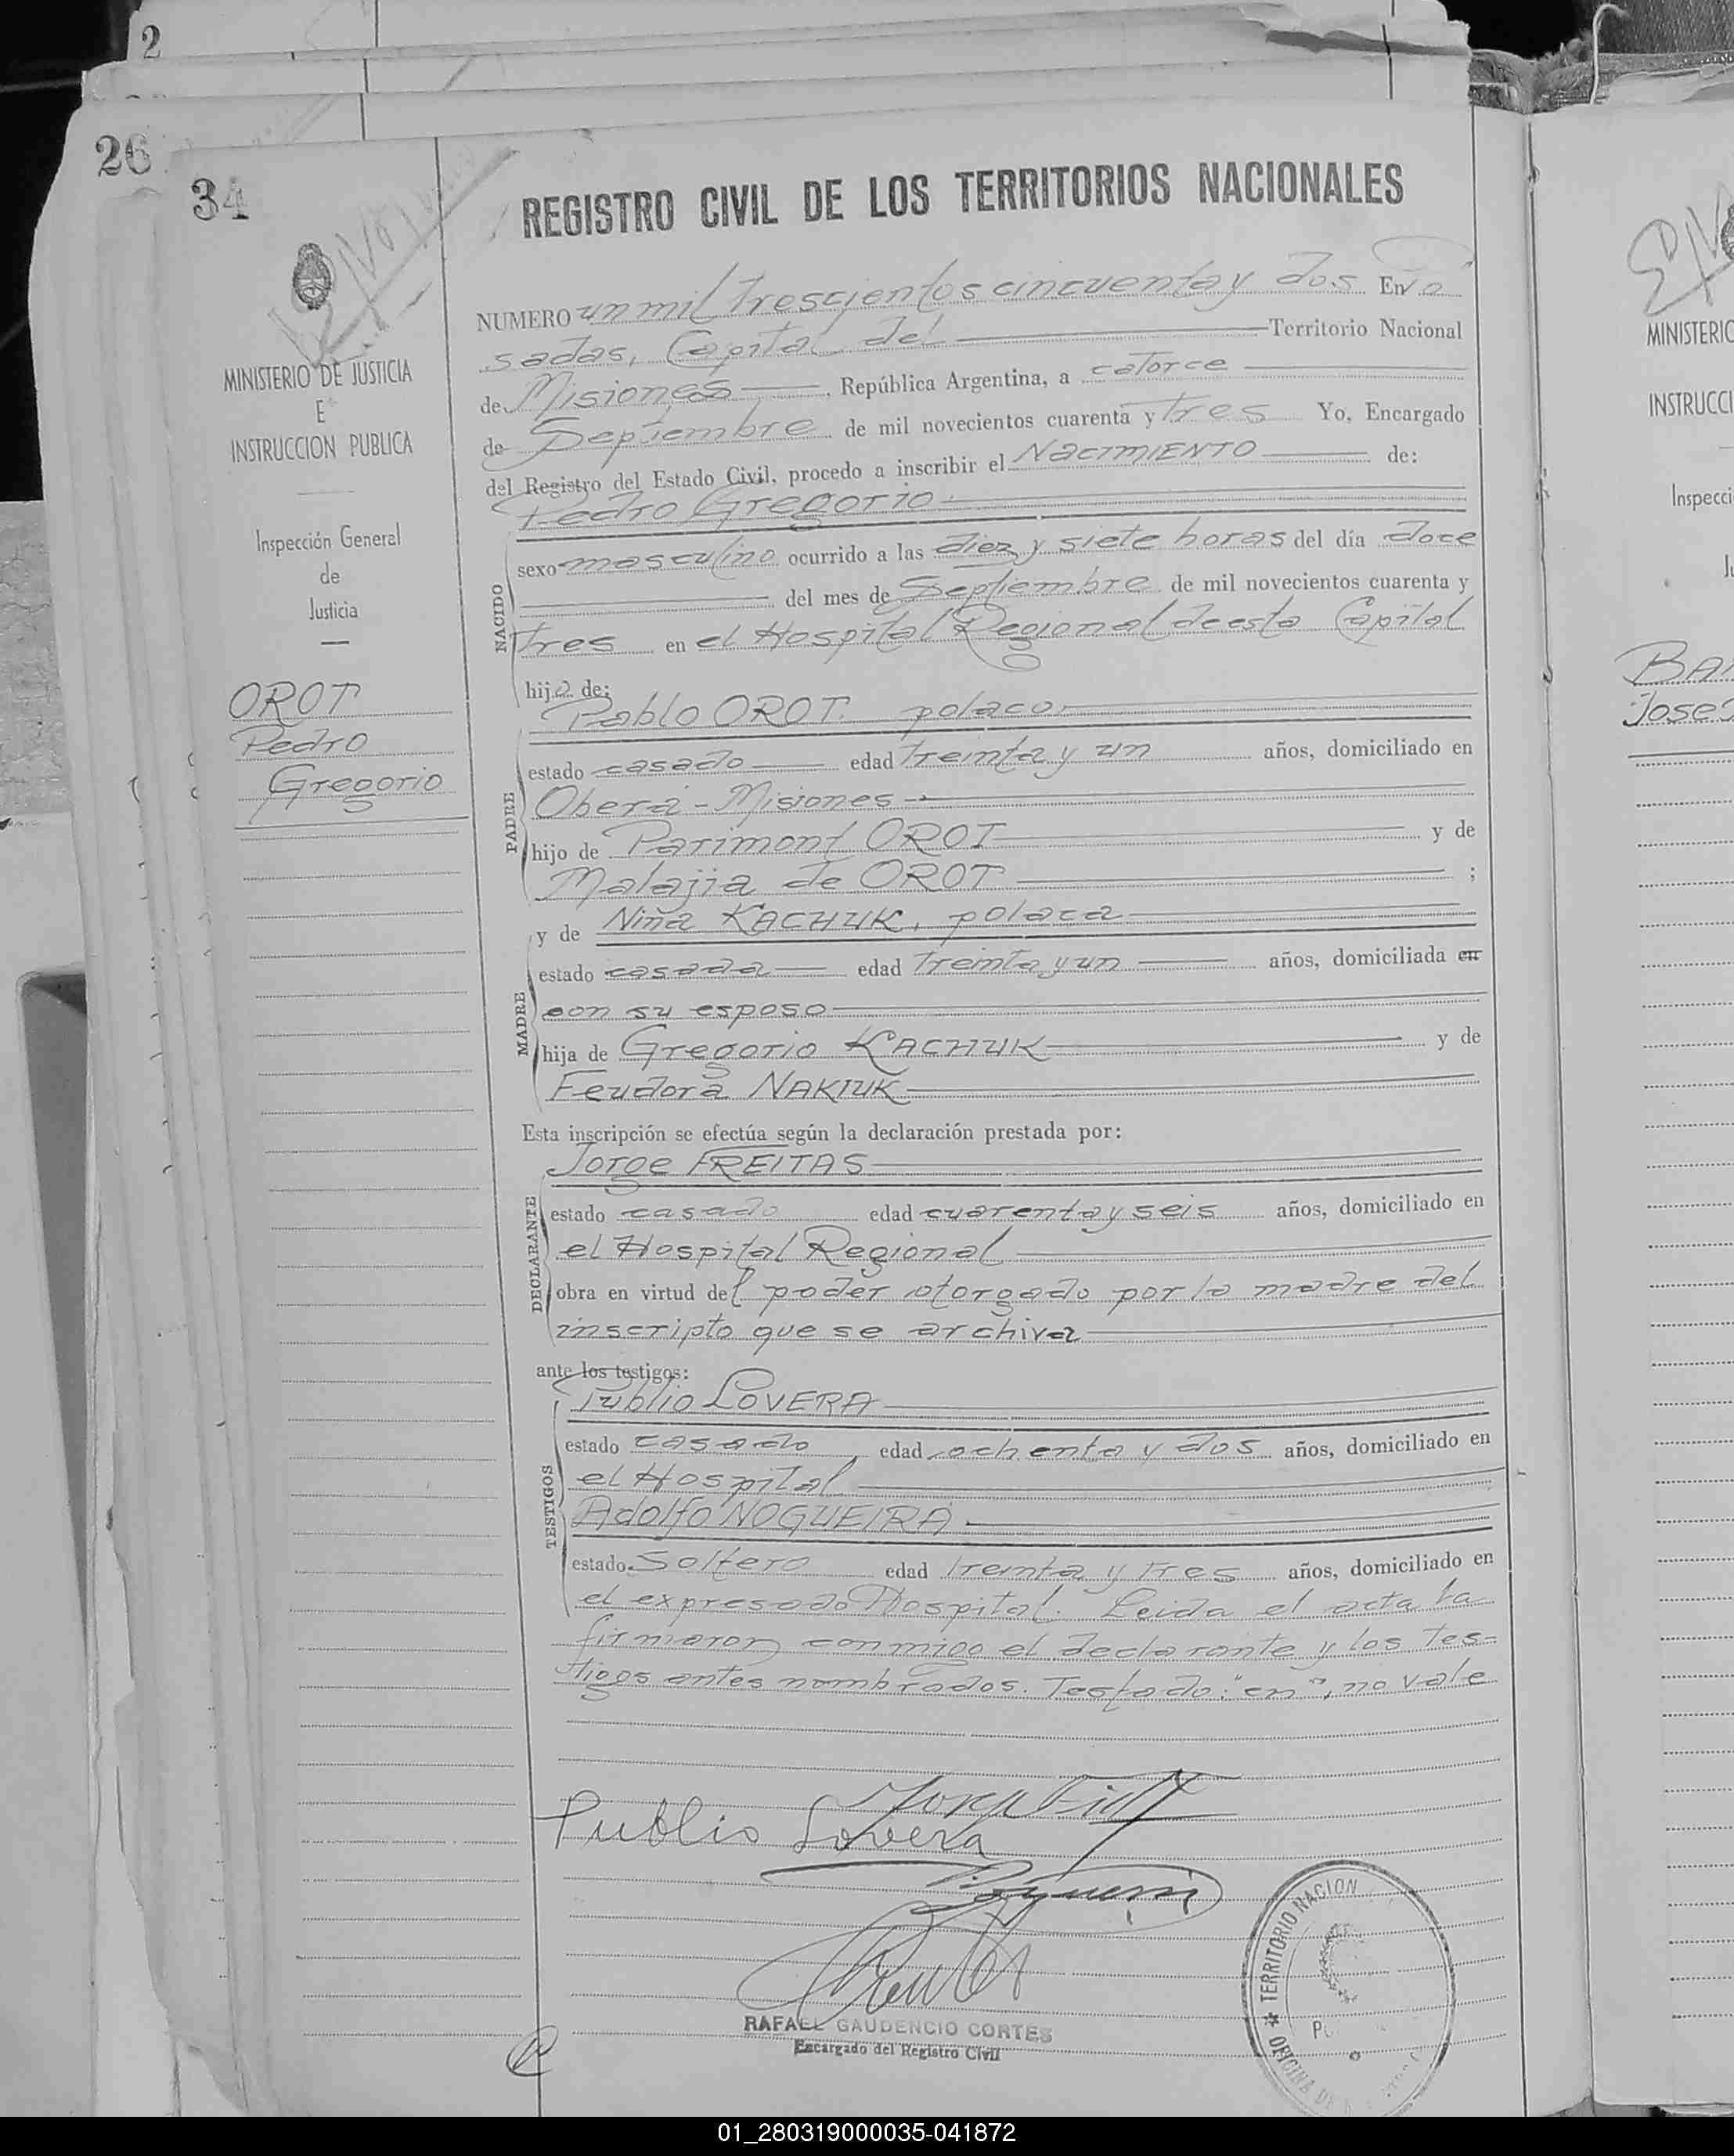 2
26
34
REGISTRO CIVIL DE LOS TERRITORIOS NACIONALES
MINISTERIO DE JUSTICIA
E
INSTRUCCION PUBLICA
Inspección General
de
Justicia
OROT
Pedro
Gregorio
NUMERO un mil trescientos cincuenta y dos En Po
sadas, Capital del Territorio Nacional
de Misiones, República Argentina, a catorce
de Septiembre de mil novecientos cuarenta y tres Yo, Encargado
del Registro del Estado Civil, procedo a inscribir el NACIMIENTO de:
Pedro Gregorio
NACIDO
sexo masculino ocurrido a las diez y siete horas del día doce
del mes de Septiembre de mil novecientos cuarenta y
tres en el Hospital Regional de esta Capital
hijo de:
Pablo OROT. polaco
PADRE
estado casado edad treinta y un años, domiciliado en
Oberá - Misiones
hijo de Parimont OROT y de
Malajia de OROT ;
y de Niña KACHUK, polaca
MADRE
estado casada edad treinta y un años, domiciliada en
con su esposo
hija de Gregorio KACHUK y de
Feudora NAKIUK
Esta inscripción se efectúa según la declaración prestada por:
Jorge FREITAS
DECLARANTE
estado casado edad cuarenta y seis años, domiciliado en
el Hospital Regional
obra en virtud del poder otorgado por la madre del
inscripto que se archiva
ante los testigos:
Publio LOVERA
TESTIGOS
estado casado edad ochenta y dos años, domiciliado en
el Hospital
Adolfo NOGUEIRA
estado Soltero edad treinta y tres años, domiciliado en
el expresado Hospital. Leida el acta la
firmaron conmigo el declarante y los tes-
tigos antes nombrados. Testado: "en", no vale
Publio Lovera
RAFAEL GAUDENCIO CORTES
Encargado del Registro Civil
TERRITORIO NACION
OFICINA DE
MINISTERIO
INSTRUCCI
Inspecci
Ju
BAR
Jose
01_280319000035-041872